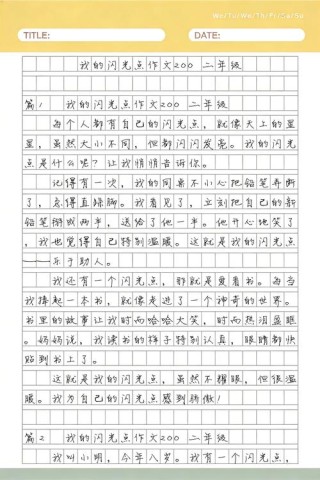 Mo/Tu/We/Th/Fr/Sa/Su
TITLE:
DATE:
我的闪光点作文200 二年级
篇1 我的闪光点作文200 二年级
每个人都有自己的闪光点，就像天上的星
星，虽然大小不同，但都闪闪发亮。我的闪光
点是什么呢？让我悄悄告诉你。
记得有一次，我的同桌不小心把铅笔弄断
了，急得直跺脚。我看见了，立刻把自己的新
铅笔掰成两半，送给了他一半。他开心地笑了
，我也觉得自己特别温暖。这就是我的闪光点
——乐于助人。
我还有一个闪光点，那就是爱看书。每当
我捧起一本书，就像走进了一个神奇的世界。
书里的故事让我时而哈哈大笑，时而热泪盈眶
。妈妈说，我读书的样子特别认真，眼睛都快
贴到书上了。
这就是我的闪光点，虽然不耀眼，但很温
暖。我为自己的闪光点感到骄傲！
篇2 我的闪光点作文200 二年级
我叫小明，今年八岁。我有一个闪光点，